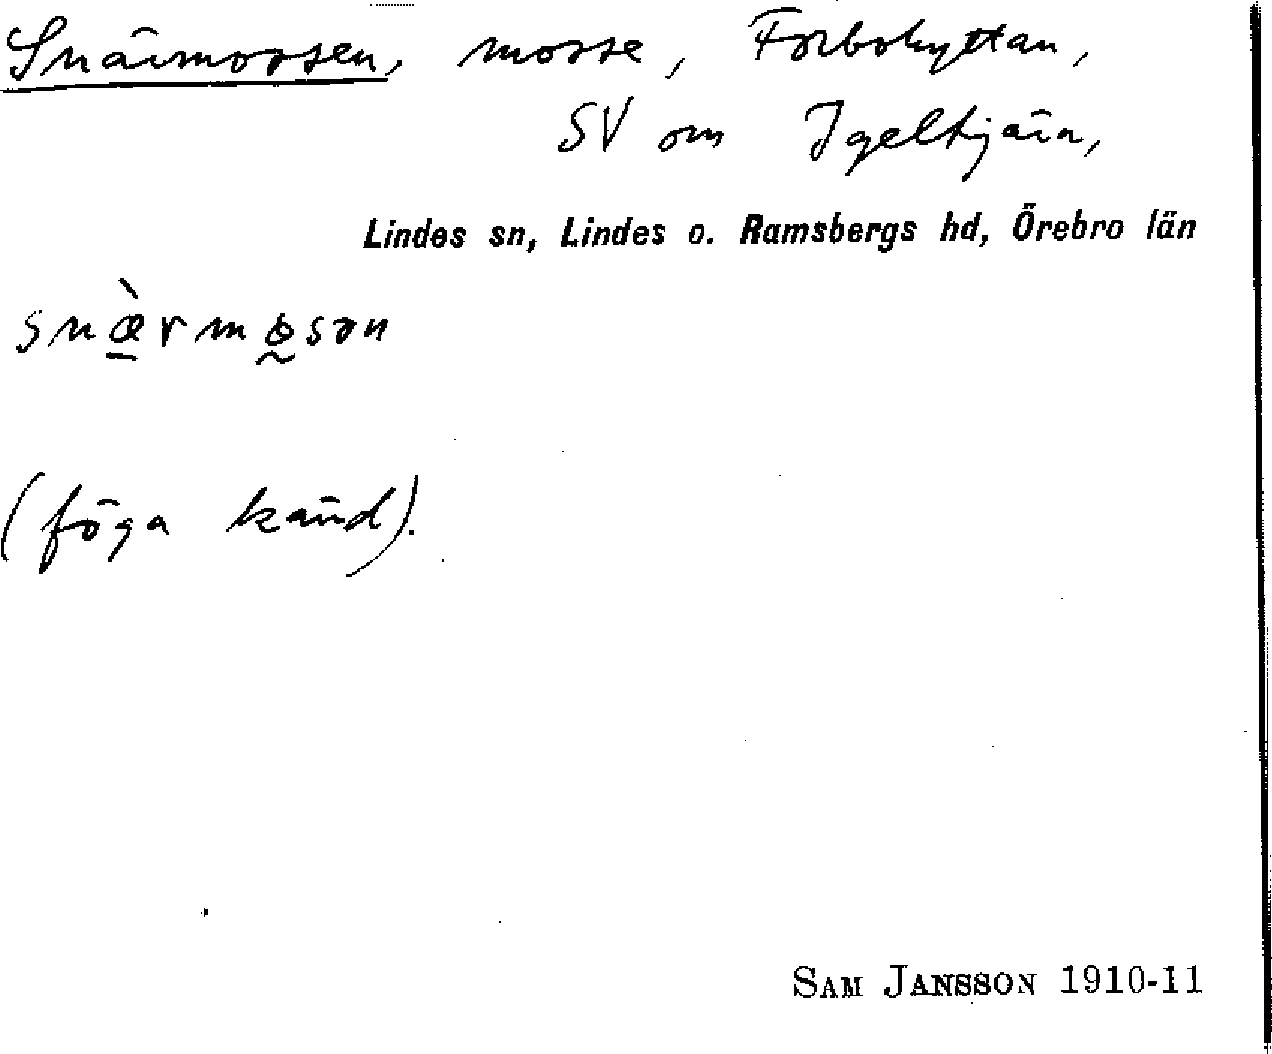 Snärmossen, mosse, Forbohyttan,
SV om Igeltjärn,
Lindes sn, Lindes o. Ramsbergs hd, Örebro län
snæ̠̀rmo̰sən
(föga känd).
SAM JANSSON 1910-11